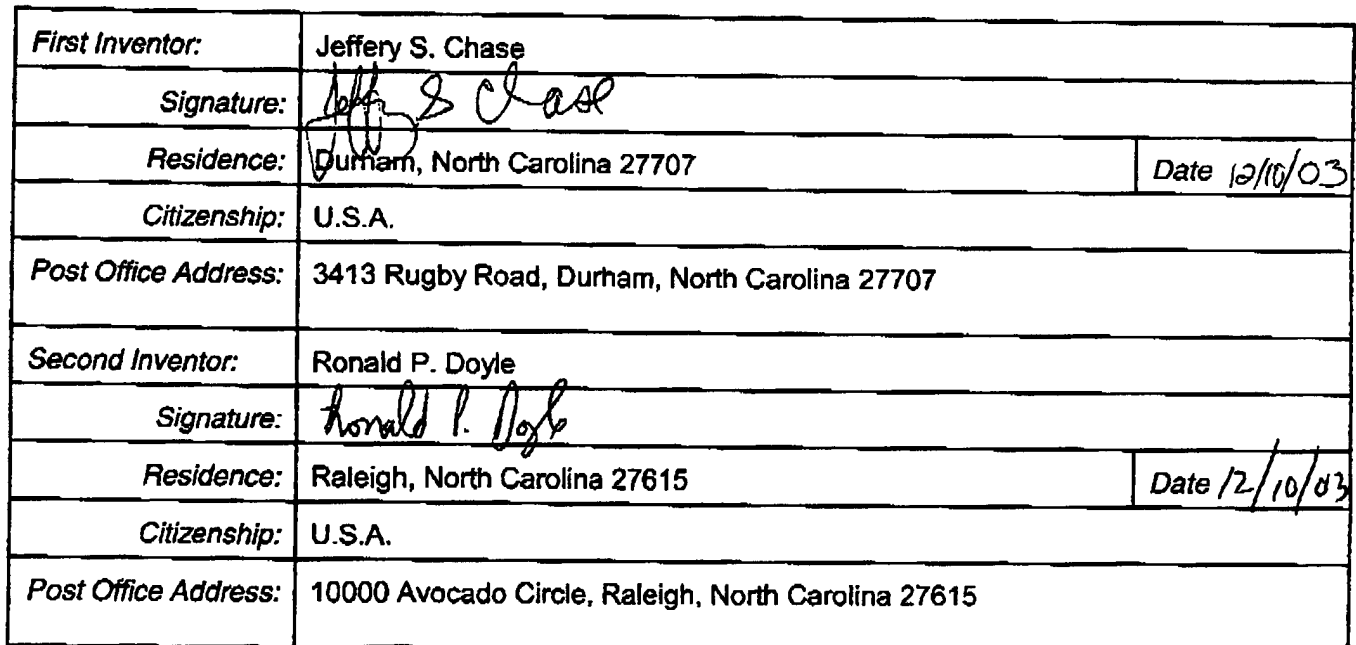 First Inventor: Jeffery S. Chase
Signature: Jeffy S Chase
Residence: Durham, North Carolina 27707 Date 12/10/03
Citizenship: U.S.A.
Post Office Address: 3413 Rugby Road, Durham, North Carolina 27707
Second Inventor: Ronald P. Doyle
Signature: Ronald P. Doyle
Residence: Raleigh, North Carolina 27615 Date 12/10/03
Citizenship: U.S.A.
Post Office Address: 10000 Avocado Circle, Raleigh, North Carolina 27615